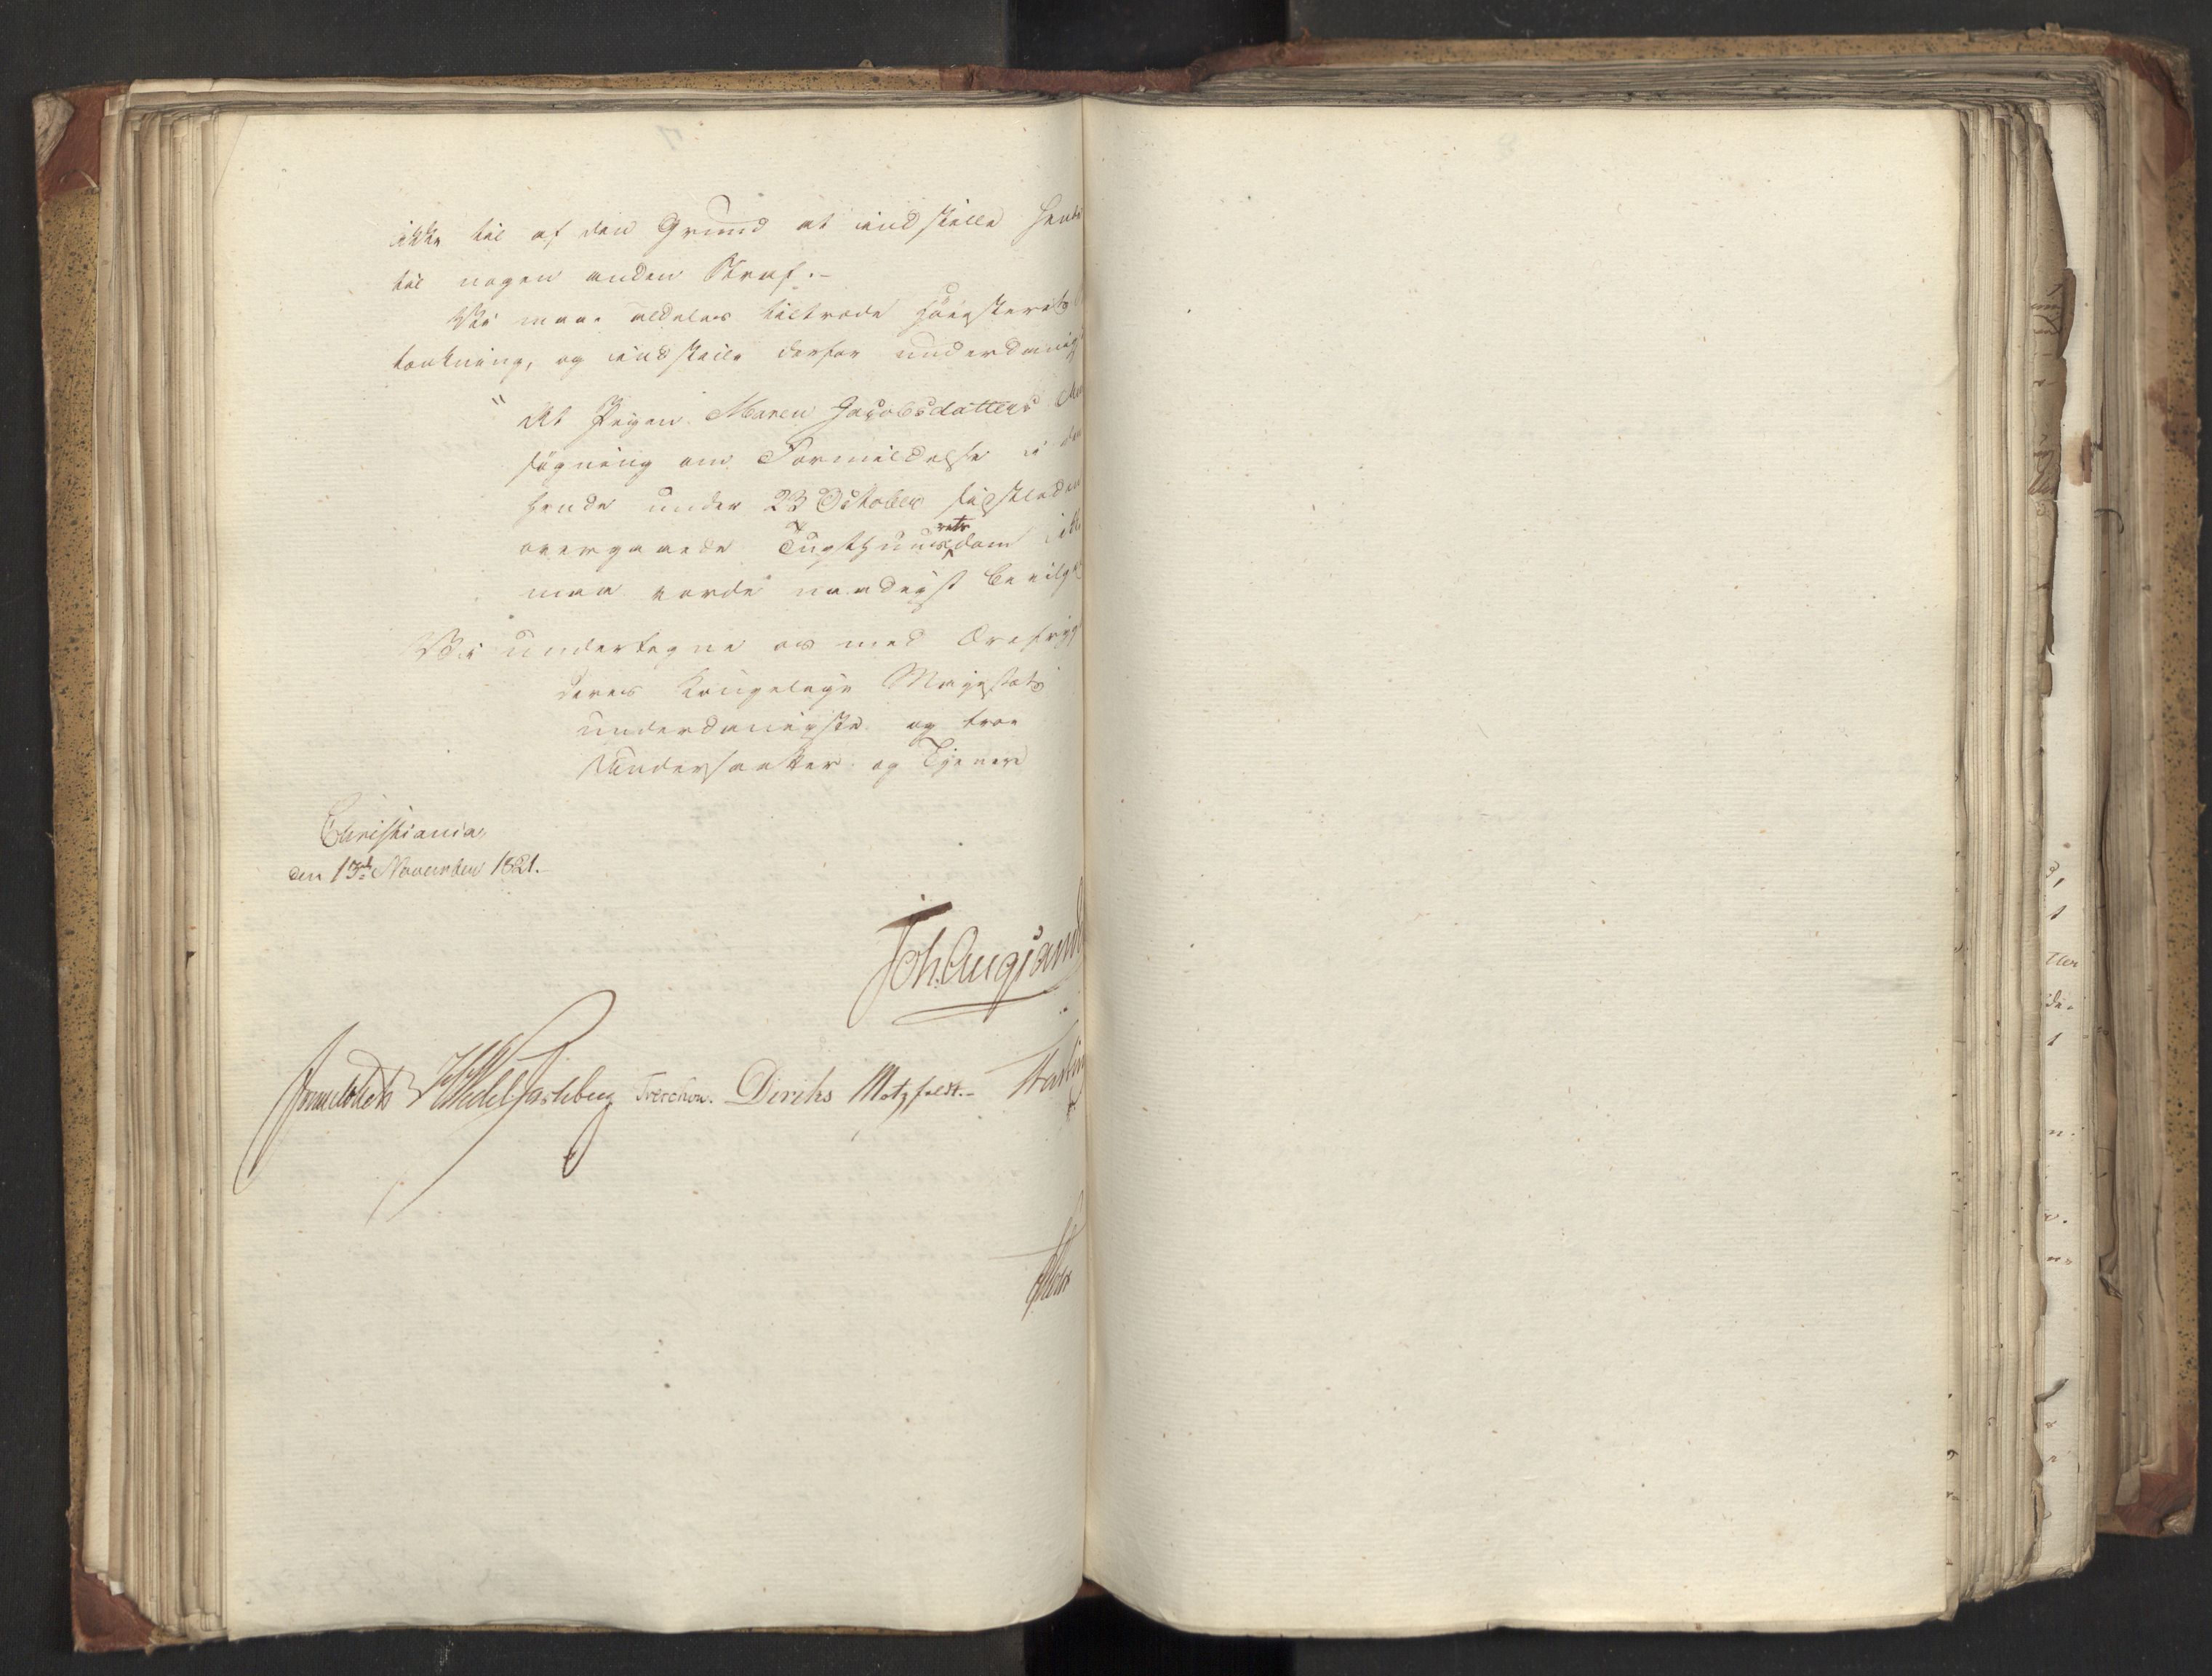 ikke til af den Grund at indstille hende
til nogen anden Straf.-
Vi maae aldeles tiltræde Höiesterets
tænkning, og indstille derfor underdanigst
"At Pigen Maren Jacobsdatters An
søgning om Formildelse i den
hende under 23 October sidstleden
overgaaede Tugthuusrets dom ikke
maa vorde naadigst bevilget
Vi undertegne os med Ærefrygt
Deres Kongelige Majestæts
underdanigste og troe
Undersaatter og Tjenere
Christiania,
den 13de November 1821.
Joh. Aug. Sand
Sommerhielm HWedel Jarlsberg Treschow. Diriks Motzfeldt.- Fasting